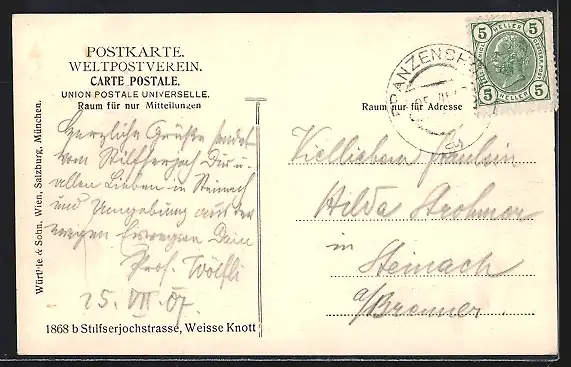 POSTKARTE.
WELTPOSTVEREIN.
CARTE POSTALE.
UNION POSTALE UNIVERSELLE.
Raum für nur Mitteilungen
Herzliche Grüße sendet
vom Stilfserjoch Dir u.
allen Lieben in Steinach
und Umgebung auf der
wegen Dein
Prof. Wölfli
25. VII. 07.
1868 b Stilfserjochstrasse, Weisse Knott
Würthle & Sohn, Wien, Salzburg, München.
Raum nur für Adresse
FRANZENS
5 HELLER 5
5 HELLER 5
Fräulein
Hilda Strohmer
in
Steinach
a/Brenner